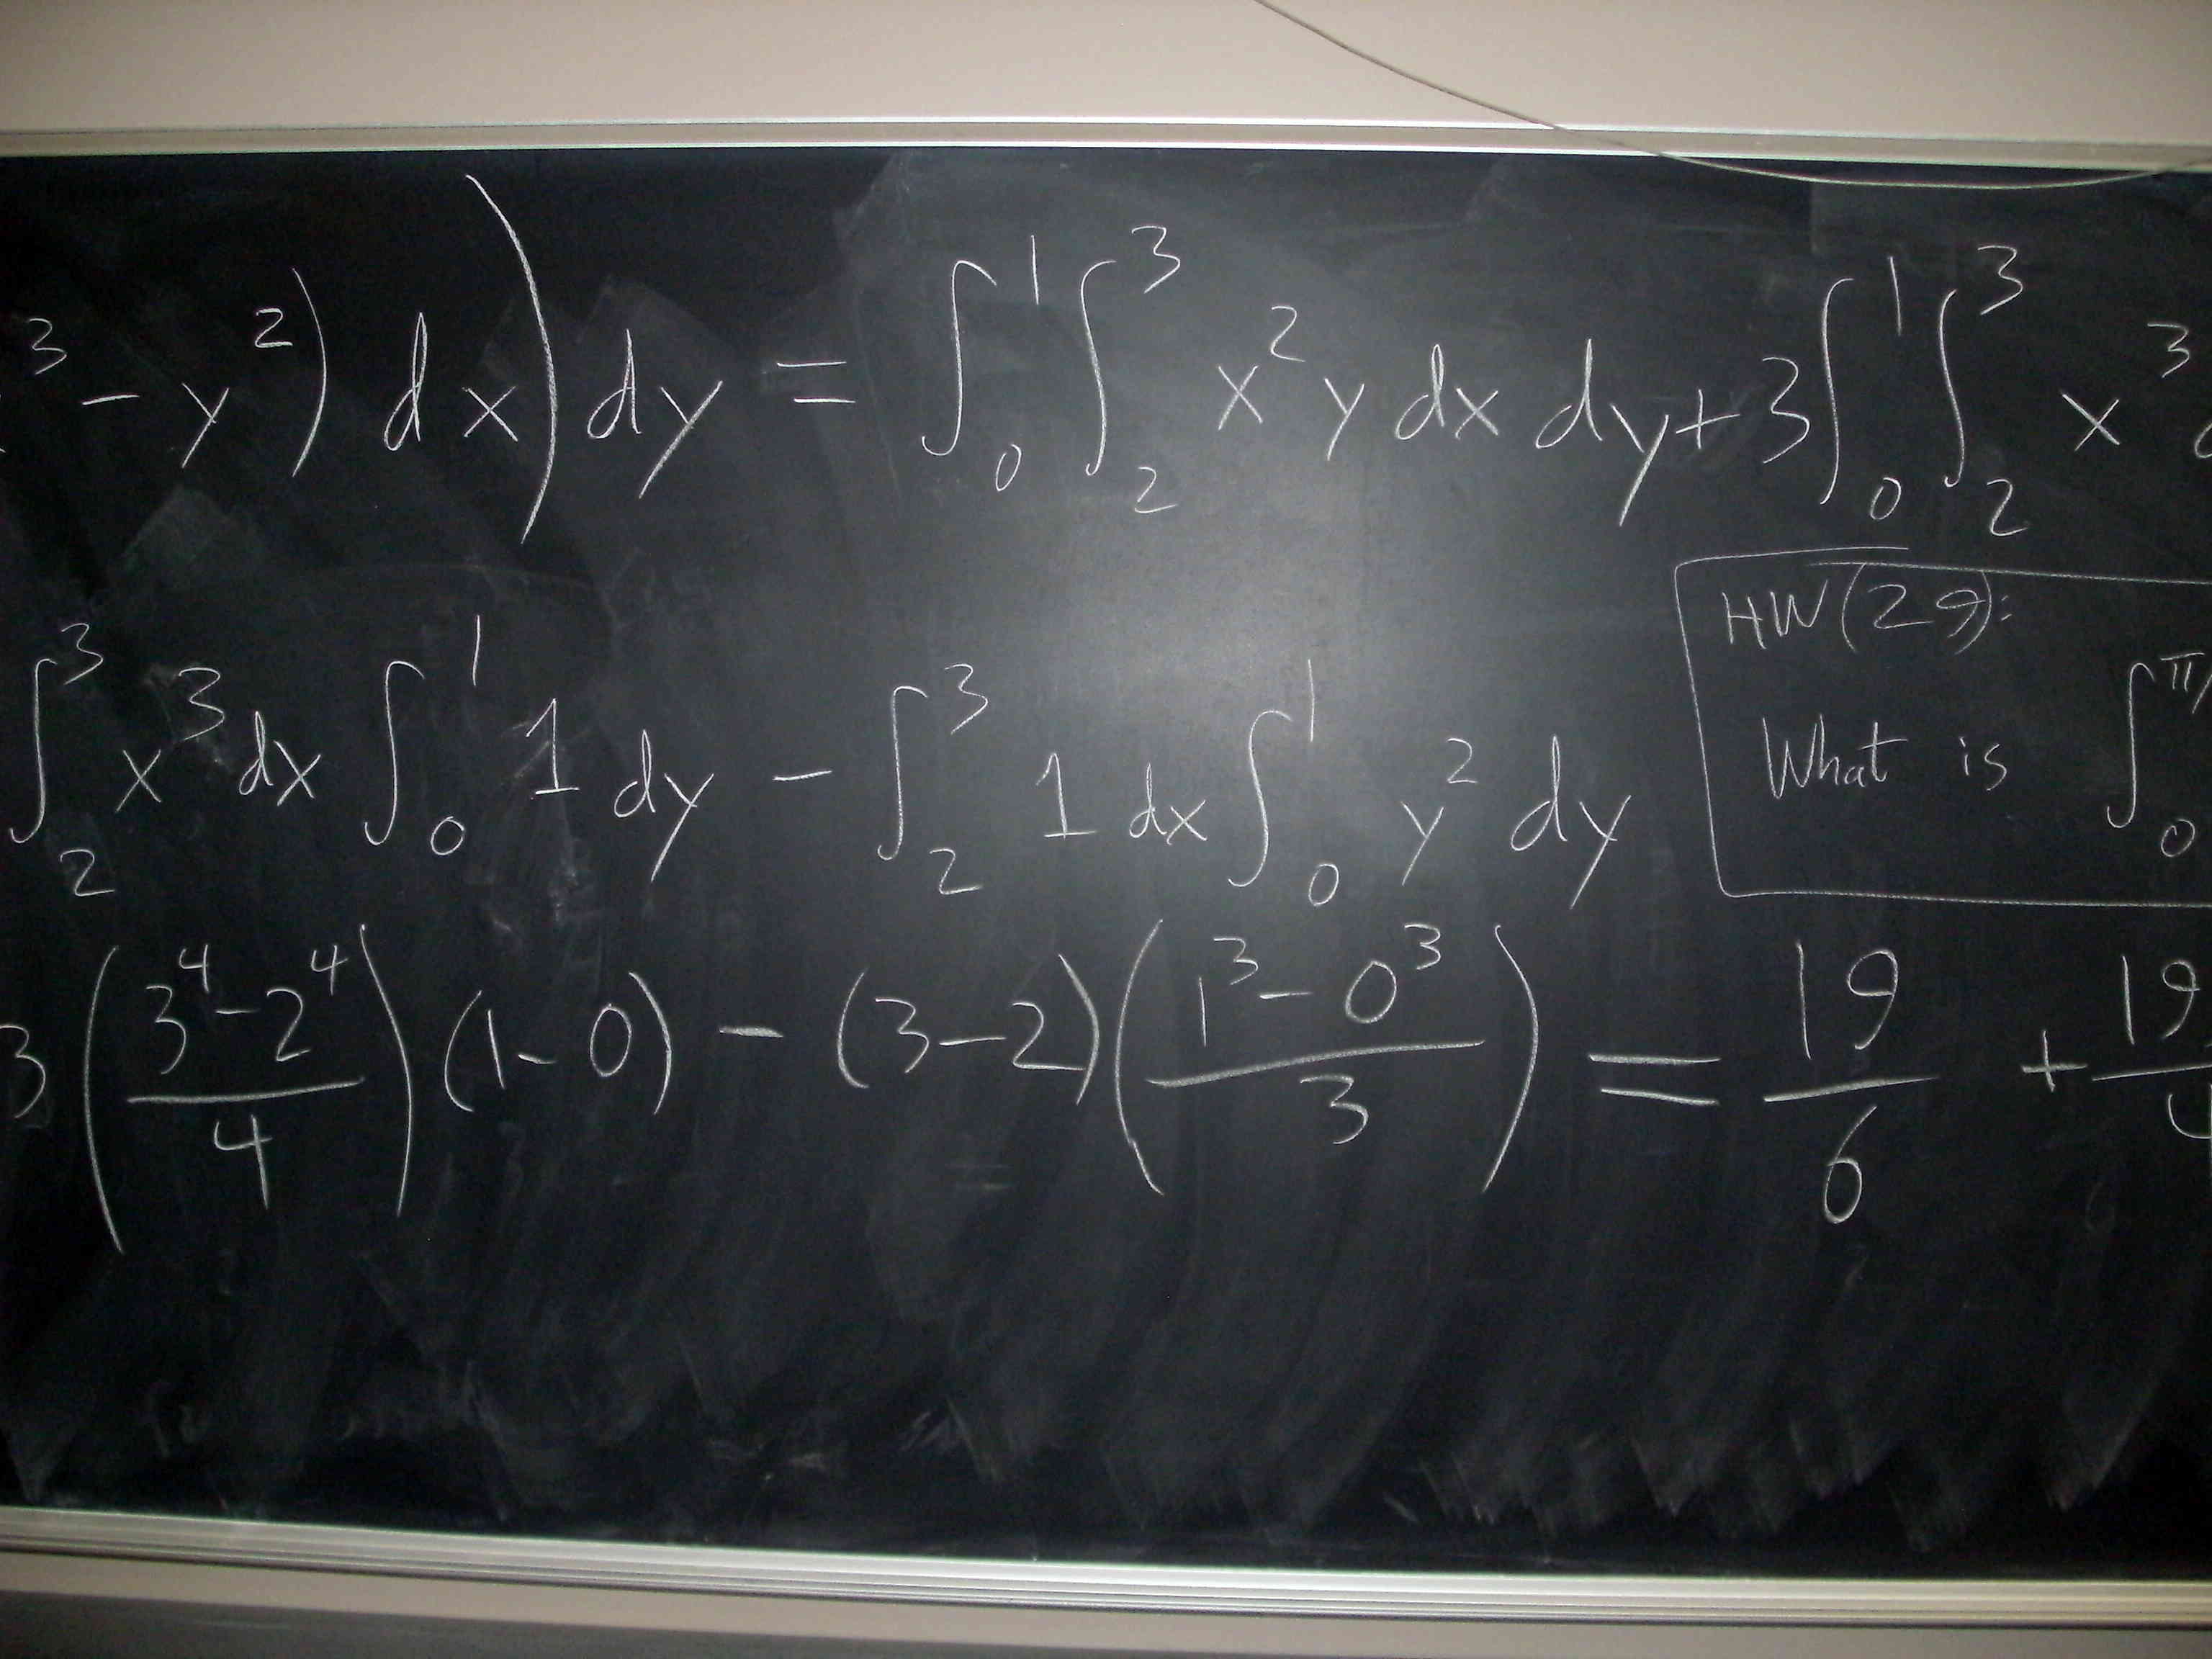 ³ − y²) dx) dy = ∫₀¹ ∫₂³ x² y dx dy + 3 ∫₀¹ ∫₂³ x³
HW(29):
∫₂³ x³ dx ∫₀¹ 1 dy − ∫₂³ 1 dx ∫₀¹ y² dy
What is ∫₀^π/
3 ((3⁴ − 2⁴)/4) (1 − 0) − (3 − 2) ((1³ − 0³)/3) = 19/6 + 19